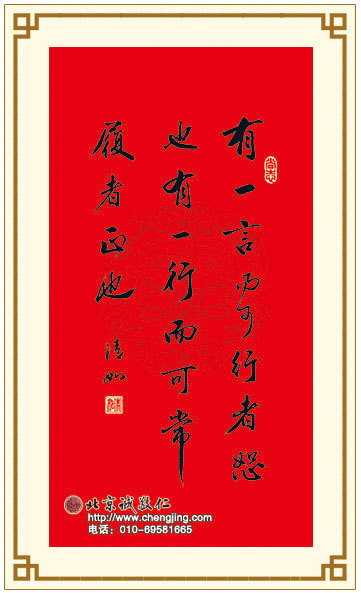 有一言而可行者恕
也有一行而可常
履者正也
清如
北京诚敬仁
http://www.chengjing.com
电话：010-69581665